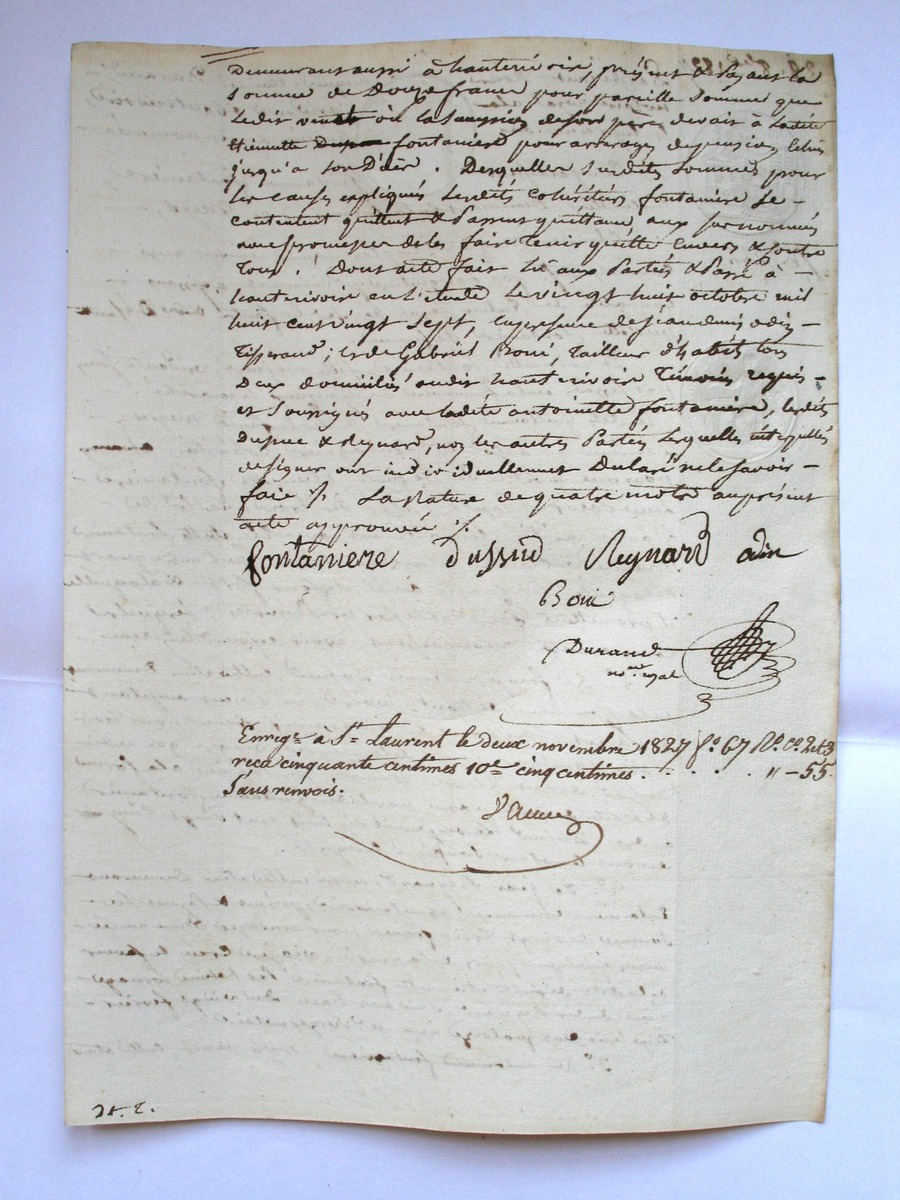 Demeurant aussi à hauterivoire, présent & Payant la
Somme de Douze francs pour pareille Somme que
Ledit ou la de son père devait à Ladite
fontaniere pour arrerages de pension Echus
jusqu'a son Décè. Desquelles Susdites Sommes pour
les causes expliqués Lesdits Cohéritiers fontaniere Se
contentent quittent & Passent quittance aux surnommés
avec promesse de les faire Tenir quitte Envers & Contre
Tous. Dont acte fait lû aux Parties & Passé à
hauterivoire en l'étude Le vingt huit octobre mil
huit cent vingt Sept, en presence de odin
Tisserand; et de Gabriel Boui, Tailleur d'habits tous
Deux domiciliés audit hauterivoire Témoins requis
et Soussignés avec ladite antoinette fontaniere, lesdits
& Reynard, non les autres Parties Lesquelles interpellés
de signer ont individuellement Déclaré ne le savoir
faire ./. La Rature de quatre mots au présent
acte approuvée ./.
fontaniere Dussud Reynard odin
Boui
Durand
nore. royal
Enregé. à St. Laurent le deux novembre 1827 fo. 67 Ro. Ces. 2 et 3
reçu cinquante centimes 10e. cinq centimes. . . . . " – 55.
Sans renvois.